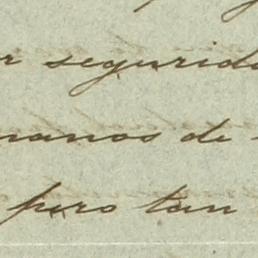 r segurida
manos de
pero tan